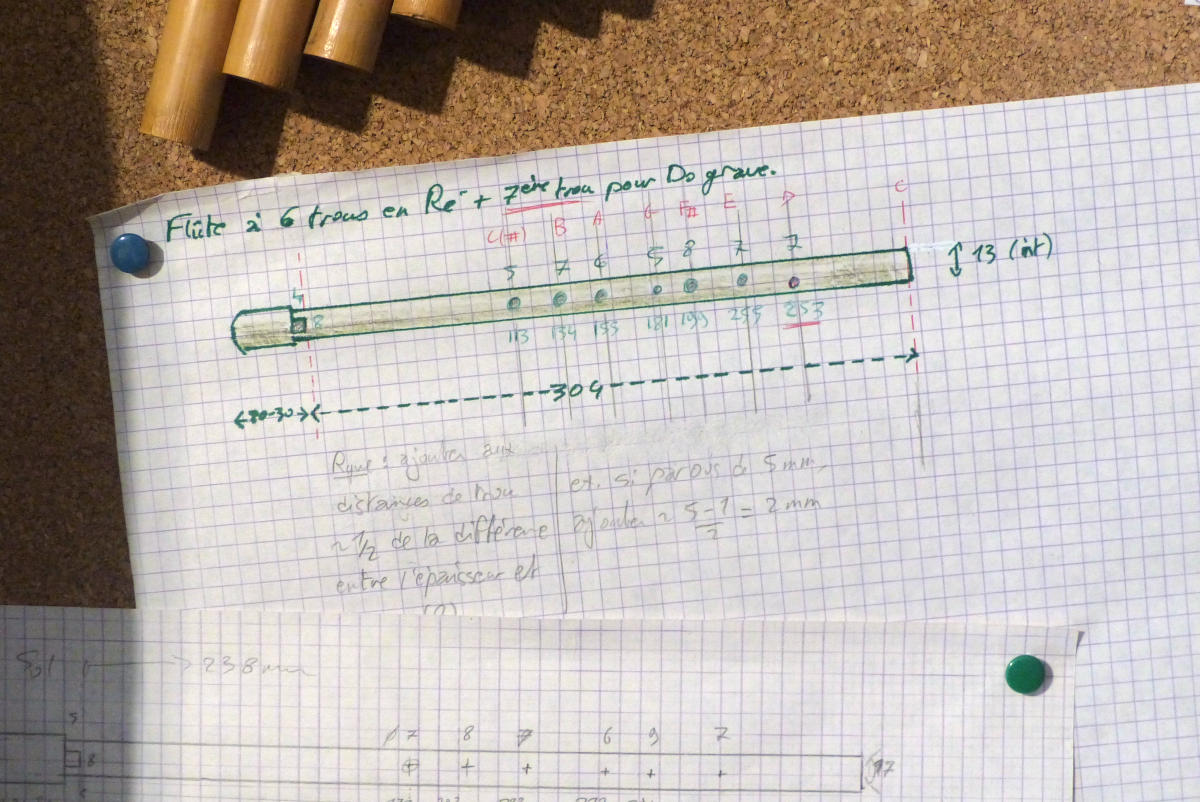 Flûte à 6 trous en Ré + 7ère trou pour Do grave.
C(#) B A G F# E D C
5 7 6 5 8 7 7
4
8
13 (int)
113 134 155 181 199 255 253
304
20-30
Rque : ajouter aux
distances de trou
~ 1/2 de la différence
entre l'épaisseur et
ex. si parois de 5 mm,
ajouter ~ 5-1/2 = 2 mm
Sol → 238mm
5
7 8 7 6 9 7
8
17